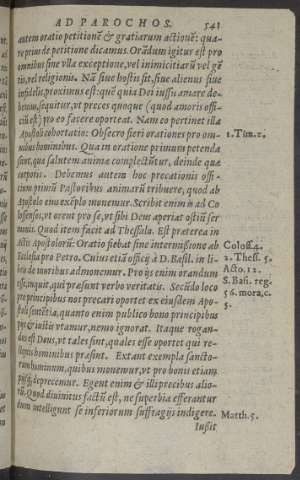 AD PAROCHOS. 541
autem oratio petitionē & gratiarum actionē: qua-
re prius de petitione dicamus. Orādum igitur est pro
omnibus sine vlla exceptione, vel inimicitiarū vel gē
tis, vel religionis. Nā siue hostis sit, siue alienus siue
infidelis, proximus est: quē quia Dei iussu amare de-
bemus, sequitur, vt preces quoque (quod amoris offi-
cium est) pro eo facere oporteat. Nam eo pertinet illa
Apostoli cohortatio: Obsecro fieri orationes pro om-
nibus hominibus. Qua in oratione primum petenda
sunt, quæ salutem animæ complectūtur, deinde quæ
corporis. Debemus autem hoc precationis offi-
cium primū Pastoribus animarū tribuere, quod ab
Apostolo eius exēplo monemur. Scribit enim is ad Co
losenses, vt orent pro se, vt sibi Deus aperiat ostiū ser
monis. Quod item facit ad Thessalo. Est præterea in
Actis Apostolorū. Oratio fiebat sine intermissione ab
Ecclesia pro Petro. Cuius etiā officij à D. Basil. in li-
bris de moribus admonemur. Pro ijs enim orandum
est, inquit, qui præsunt verbo veritatis. Secūdo loco
pro principibus nos precari oportet ex eiusdem Apo-
stoli sententia, quanto enim publico bono principibus
pijs & iustis vtamur, nemo ignorat. Itaque rogan-
dus est Deus, vt tales sint, quales esse oportet qui re-
liquis hominibus præsint. Extant exempla sancto-
rum hominum, quibus monemur, vt pro bonis etiam
pijsq́; deprecemur. Egent enim & illi precibus alio-
rū. Quod diuinitus factū est, ne superbia efferantur
dum intelligunt se inferiorum suffragijs indigere.
Iussit
1. Tim. 2.
Coloss. 4.
2. Thess. 5.
Acto. 12.
S. Basi. reg.
56. mora. c.
5.
Matth. 5.